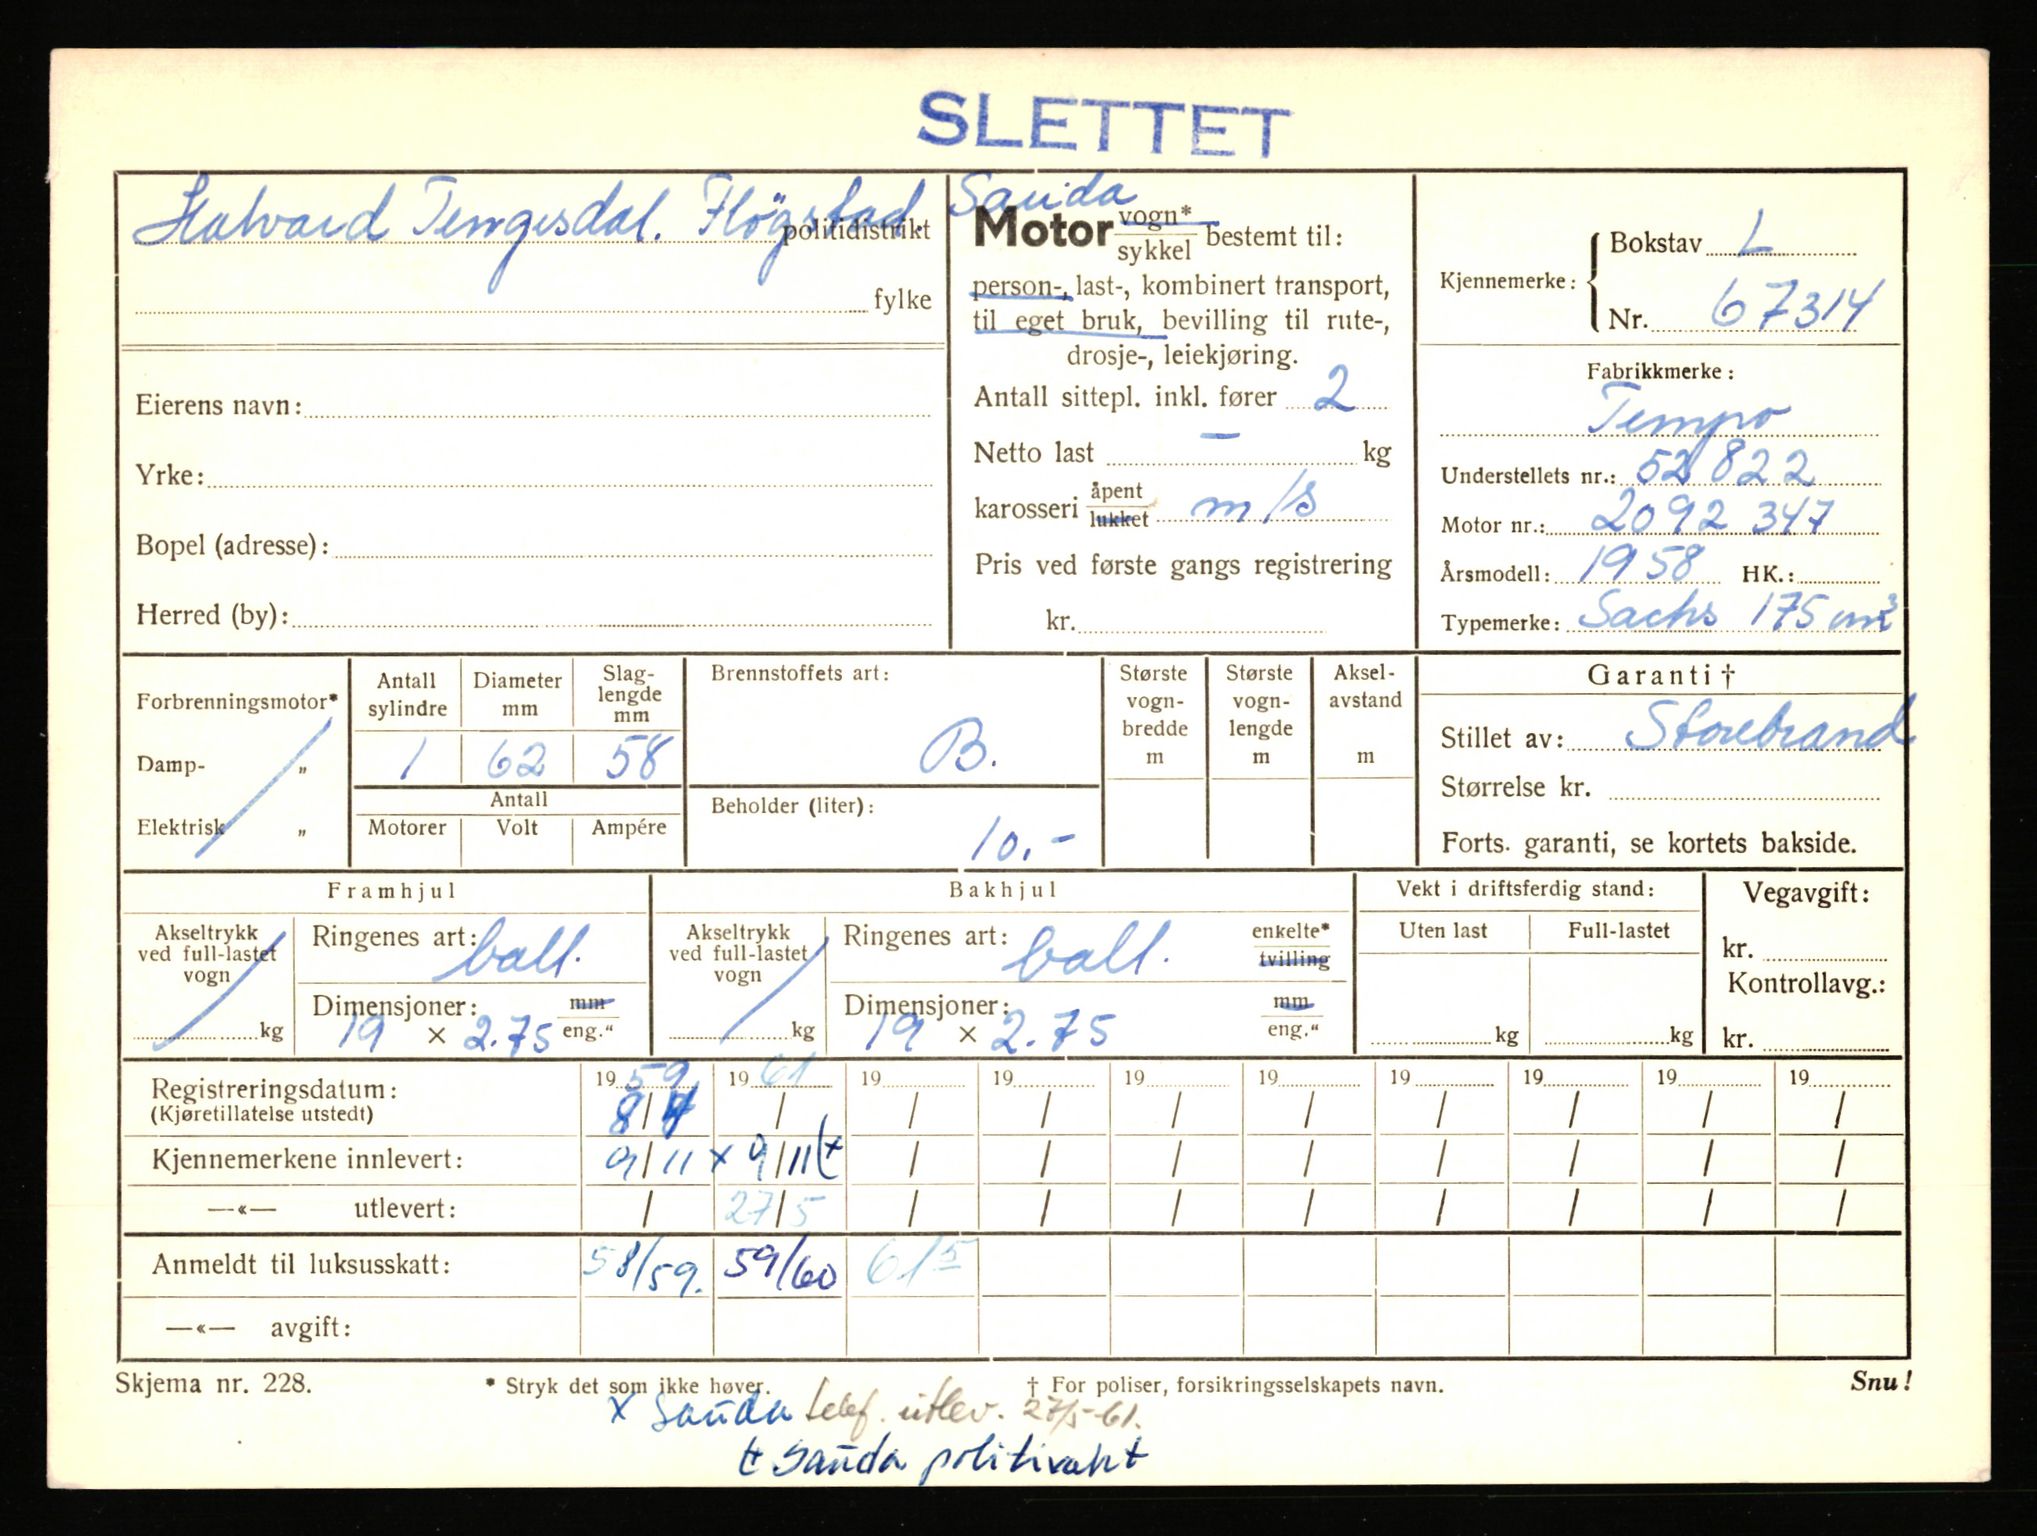 SLETTET
Halvard Tengesdal. Fløgstad. Sauda
politidistrikt
fylke
Eierens navn:
Yrke:
Bopel (adresse):
Herred (by):
Motor vogn* / sykkel bestemt til:
person-, last-, kombinert transport,
til eget bruk, bevilling til rute-,
drosje-, leiekjøring.
Antall sittepl. inkl. fører 2
Netto last — kg
karosseri åpent / lukket m/s
Pris ved første gangs registrering
kr.
Kjennemerke: Bokstav L
Nr. 67314
Fabrikkmerke:
Tempo
Understellets nr.: 52822
Motor nr.: 2092 347
Årsmodell: 1958 HK.:
Typemerke: Sachs 175 cm³
Forbrenningsmotor*
Damp- „
Elektrisk „
Antall sylindre Diameter mm Slag-lengde mm
1 62 58
Antall
Motorer Volt Ampére
Brennstoffets art:
B.
Beholder (liter):
10.-
Største vogn-bredde m
Største vogn-lengde m
Aksel-avstand m
Garanti †
Stillet av: Storebrand
Størrelse kr.
Forts. garanti, se kortets bakside.
Framhjul
Akseltrykk ved full-lastet vogn kg
Ringenes art: ball.
Dimensjoner: mm
19 × 2.75 eng.“
Bakhjul
Akseltrykk ved full-lastet vogn kg
Ringenes art: ball. enkelte* tvilling
Dimensjoner: mm
19 × 2.75 eng.“
Vekt i driftsferdig stand:
Uten last Full-lastet
kg kg
Vegavgift:
kr.
Kontrollavg.:
kr.
Registreringsdatum: 1959 1961 19 19 19 19 19 19 19 19
(Kjøretillatelse utstedt) 8/ / / / / / / / / /
Kjennemerkene innlevert: 9/11 x 9/11 / / / / / / / /
—«— utlevert: / 27/5 / / / / / / / /
Anmeldt til luksusskatt: 58/59. 59/60 61/5
—«— avgift:
Skjema nr. 228. * Stryk det som ikke høver. † For poliser, forsikringsselskapets navn. Snu!
x Sauda telef. utlev. 27/5-61.
Sauda politivakt